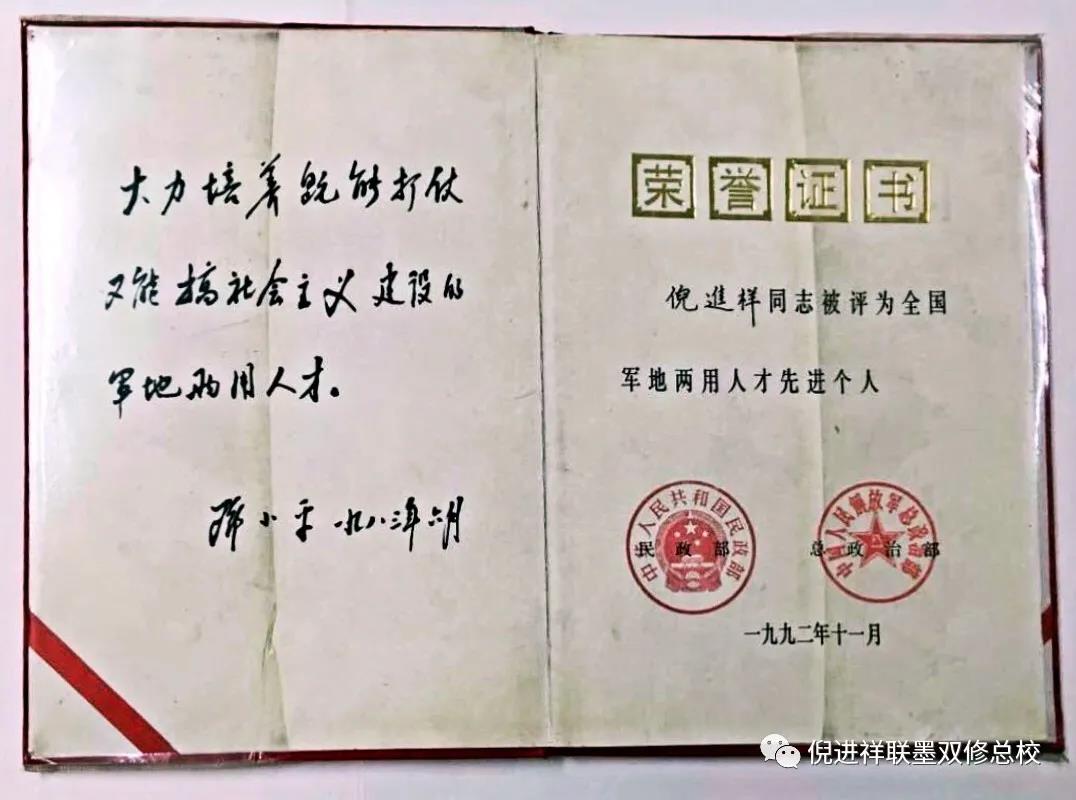 大力培养既能打仗
又能搞社会主义建设的
军地两用人才。
邓小平 一九八三年六月
荣誉证书
倪進祥同志被评为全国
军地两用人才先进个人
中华人民共和国民政部
民政部
中国人民解放军总政治部
总政治部
一九九二年十一月
倪进祥联墨双修总校